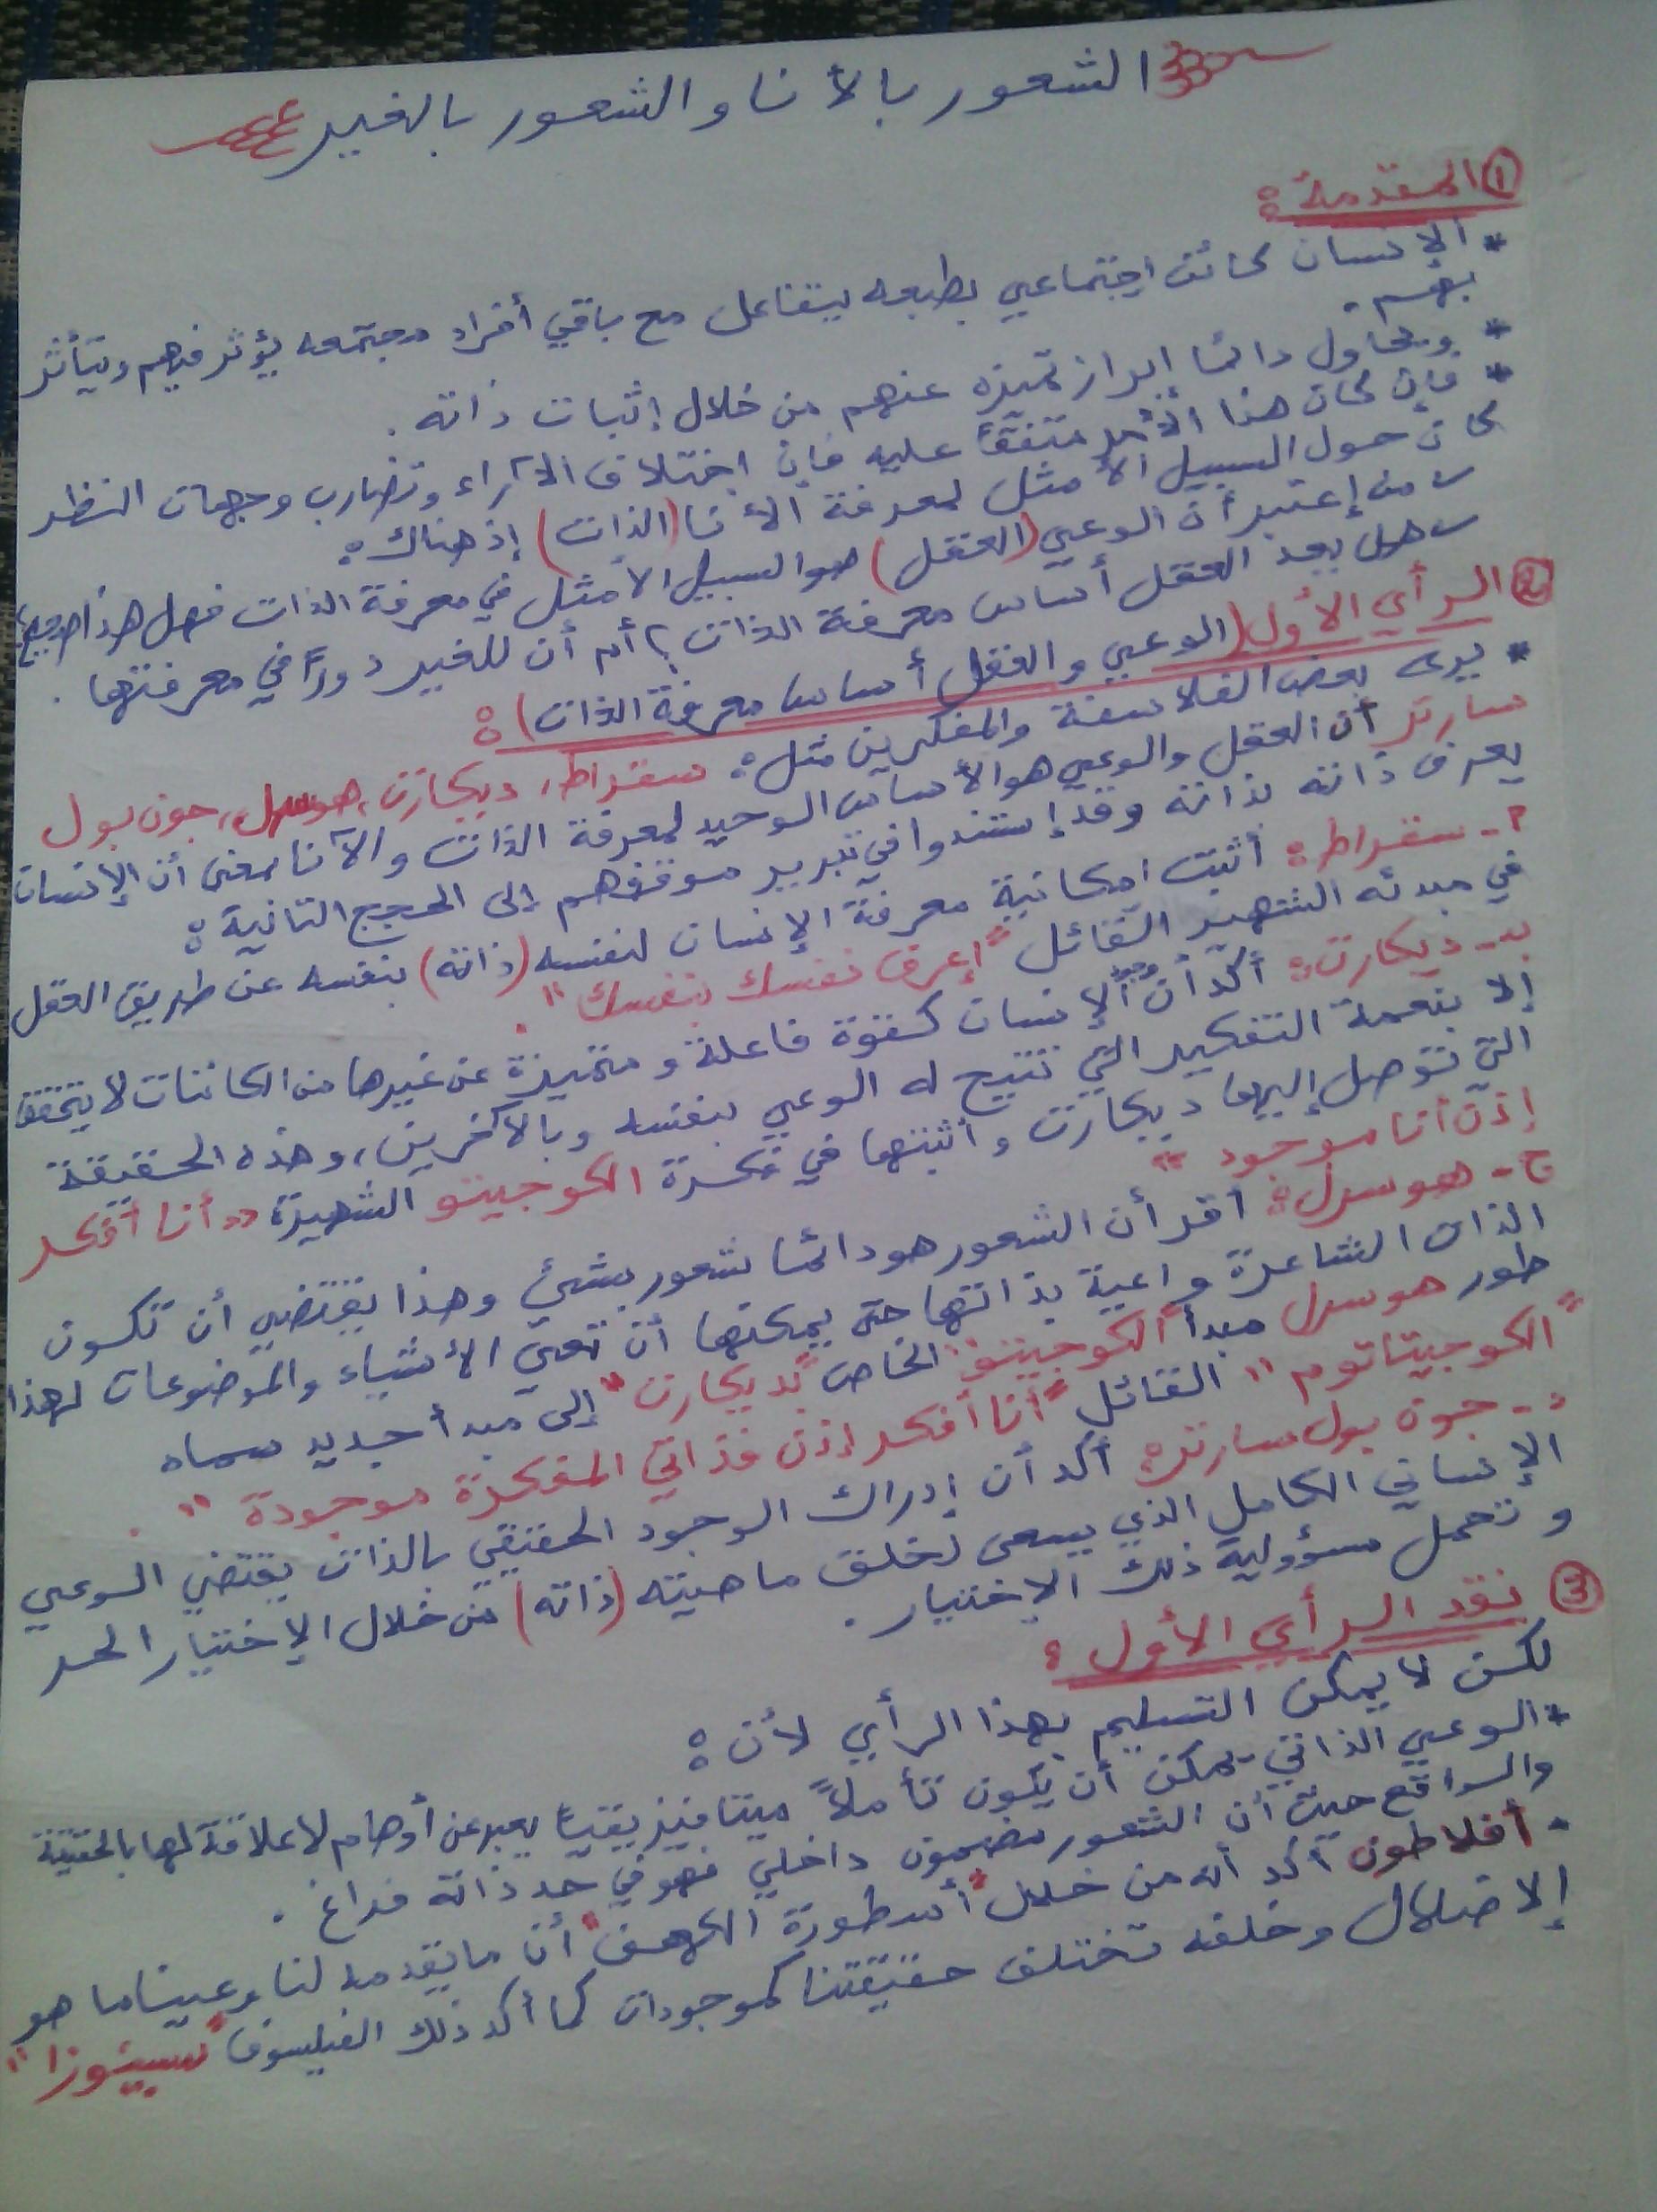 الشعور بالأنا والشعور بالغير
① المقدمة:
* الإنسان كائن اجتماعي بطبعه يتفاعل مع باقي أفراد مجتمعه يؤثر فيهم ويتأثر
بهم.
* ويحاول دائما إبراز تميزه عنهم من خلال إثبات ذاته.
* فإن كان هذا الأمر متفقاً عليه فإن اختلاف الآراء وتضارب وجهات النظر
كان حول السبيل الأمثل لمعرفة الأنا (الذات) إذ هناك:
من إعتبر أن الوعي (العقل) هو السبيل الأمثل في معرفة الذات فهل هذا صحيح؟
هل يعد العقل أساس معرفة الذات؟ أم أن للغير دوراً في معرفتها.
② الرأي الأول (الوعي والعقل أساس معرفة الذات):
* يرى بعض الفلاسفة والمفكرين مثل: سقراط، ديكارت، هوسرل، جون بول
سارتر أن العقل والوعي هو الأساس الوحيد لمعرفة الذات والأنا بمعنى أن الإنسان
يعرف ذاته بذاته وقد إستندوا في تبرير موقفهم إلى الحجج التالية:
أ- سقراط: أثبت امكانية معرفة الإنسان لنفسه (ذاته) بنفسه عن طريق العقل
في مبدئه الشهير القائل "إعرف نفسك بنفسك".
ب- ديكارت: أكد أن وجود الإنسان كقوة فاعلة ومتميزة عن غيرها من الكائنات لا يتحقق
إلا بنعمة التفكير التي تتيح له الوعي بنفسه وبالآخرين، وهذه الحقيقة
التي توصل إليها ديكارت وأثبتها في فكرة الكوجيتو الشهيرة "أنا أفكر
إذن أنا موجود"
ج- هوسرل: أقر أن الشعور هو دائما شعور بشيئ وهذا يقتضي أن تكون
الذات الشاعرة واعية بذاتها حتى يمكنها أن تعي الأشياء والموضوعات لهذا
طور هوسرل مبدأ "الكوجيتو" الخاص "بديكارت" إلى مبدأ جديد سماه
"الكوجيتاتوم" القائل "أنا أفكر إذن فذاتي المفكرة موجودة".
د- جون بول سارتر: أكد أن إدراك الوجود الحقيقي بالذات يقتضي الوعي
الإنساني الكامل الذي يسعى لخلق ماهيته (ذاته) من خلال الإختيار الحر
وتحمل مسؤولية ذلك الإختيار.
③ نقد الرأي الأول:
لكن لا يمكن التسليم بهذا الرأي لأن:
* الوعي الذاتي يمكن أن يكون تأملاً ميتافيزيقياً يعبر عن أوهام لا علاقة لها بالحقيقة
والواقع حيث أن الشعور مضمون داخلي فهو في حد ذاته فراغ.
- أفلاطون أكد أنه من خلال "أسطورة الكهف" أن ما يقدمه لنا وعينا ما هو
إلا ضلال وخلفه تختلف حقيقتنا كموجودات كما أكد ذلك الفيلسوف "سبينوزا"